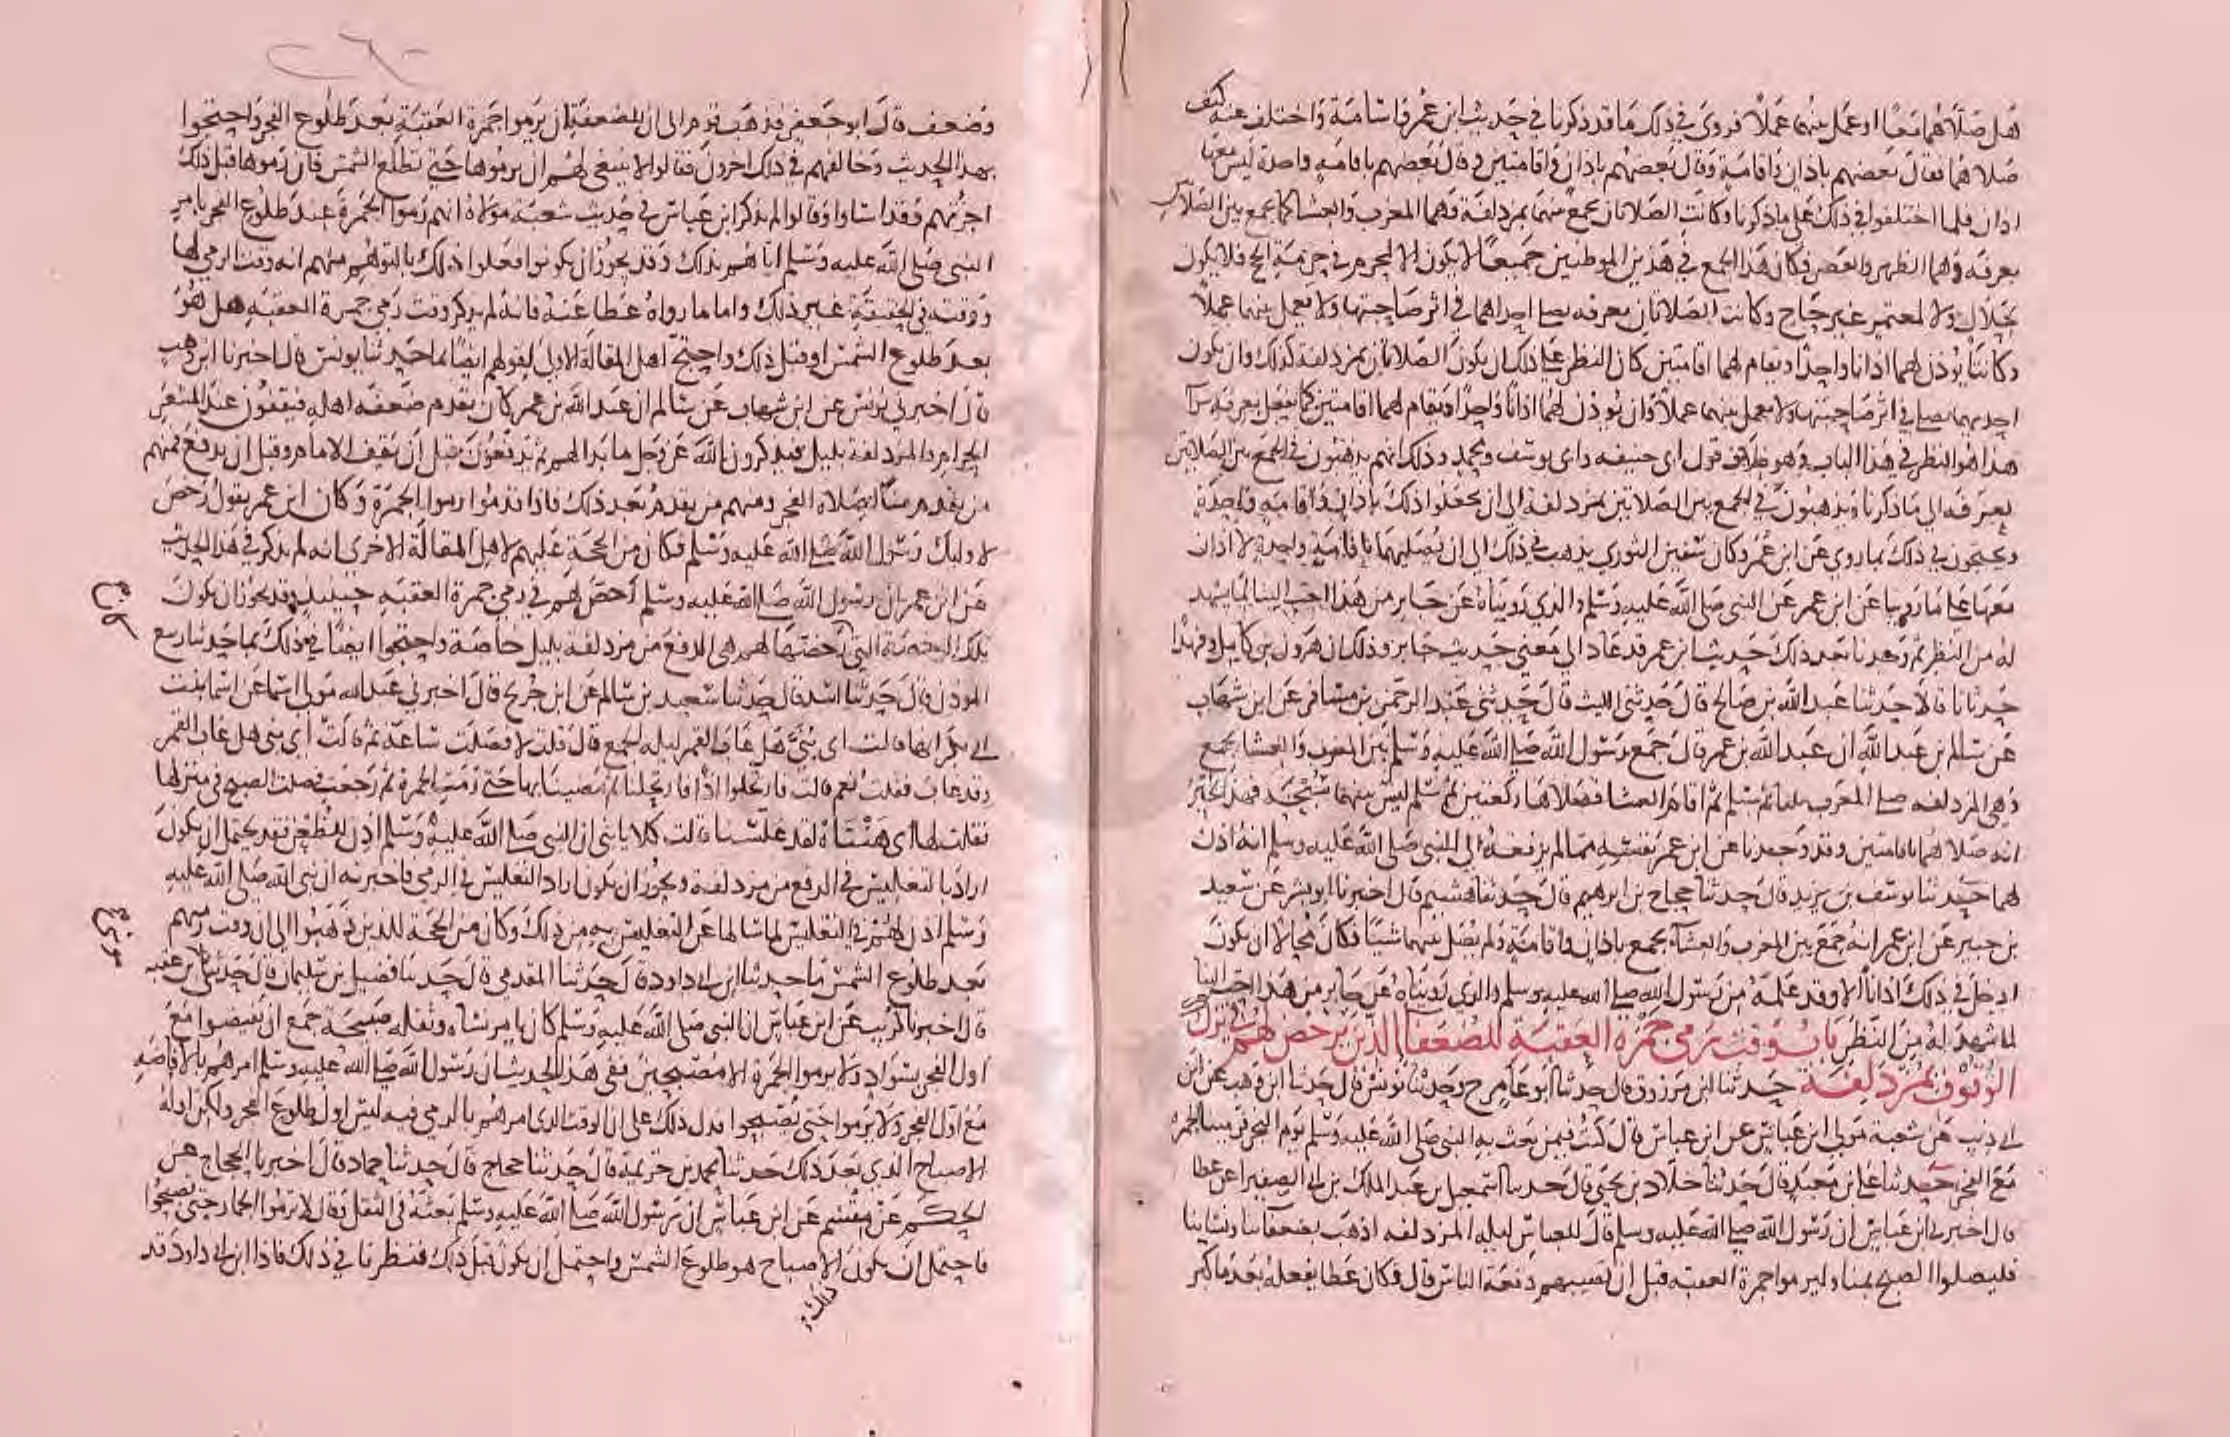 هل صلاهما معا او عمل بينهما عملا فروي في ذلك ما قد ذكرنا في حديث ابن عمر واسامة واختلف عنه كيف
صلاهما فقال بعضهم باذان واقامة وقال بعضهم باذان واقامتين وقال بعضهم باقامة واحدة ليس معها
اذان فلما اختلفوا في ذلك على ما ذكرنا وكانت الصلاتان يجمع بينهما بمزدلفة وهما المغرب والعشا كما يجمع بين الصلاتين
بعرفة وهما الظهر والعصر فكان هذا الجمع في هذين الموطنين جميعا لا يكون الا لمحرم في حرمة الحج فلا يكون
لحلال ولا لمعتمر غير حاج وكانت الصلاتان بعرفه يصلي احداهما في اثر صاحبتها ولا يعمل بينهما عملا
وكانتا يؤذن لهما اذانا واحدا ويقام لهما اقامتين كان النظر على ذلك ان يكون الصلاتان بمزدلفة كذلك وان يكون
احديهما يصلي في اثر صاحبتها ولا يعمل بينهما عملا وان يوذن لهما اذانا واحدا ويقام لهما اقامتين كما يفعل بعرفه سوا
هذا هو النظر في هذا الباب وهو خلاف قول ابي حنيفه وابي يوسف ومحمد وذلك انهم يذهبون في الجمع بين الصلاتين
بعرفه الى ما ذكرنا ويذهبون في الجمع بين الصلاتين بمزدلفة الى ان يجعلوا ذلك باذان واقامة واحدة
ويحتجون في ذلك بما روي عن ابن عمر وكان سفين الثوري يذهب في ذلك الى ان يصليهما باقامة واحدة لا اذان
معها على ما روينا عن ابن عمر عن النبي صلى الله عليه وسلم والذي رويناه عن جابر من هذا احب الينا لما يشهد
له من النظر ثم وجدنا بعد ذلك حديث ابن عمر قد عاد الى معنى حديث جابر وذلك ان هرون بن كامل وفهدا
حدثانا قالا حدثنا عبد الله بن صالح قال حدثني الليث قال حدثني عبد الرحمن بن مسافر عن ابن شهاب
عن سالم بن عبد الله ان عبد الله بن عمر قال جمع رسول الله صلى الله عليه وسلم بين المغرب والعشا بجمع
وهي المزدلفه صلى المغرب ثلثا ثم سلم ثم اقام العشا فصلاها ركعتين ثم سلم ليس بينهما سجدة فهذا يخبر
انه صلاهما باقامتين وقد وجدنا عن ابن عمر نفسه مما لم يرفعه الى النبي صلى الله عليه وسلم انه اذن
لهما حدثنا يوسف بن يزيد قال حدثنا حجاج بن ابرهيم قال حدثنا هشيم قال اخبرنا ابو بشر عن سعيد
بن جبير عن ابن عمر انه جمع بين المغرب والعشاء بجمع باذان واقامة ولم يصل بينهما شيئا فكان محالا ان يكون
ادخل في ذلك اذانا الا وقد علمه من رسول الله صلى الله عليه وسلم والذي رويناه عن جابر من هذا احب الينا
لما شهد له من النظر باب وقت رمي جمرة العقبة للضعفا الذين يرخص لهم في ترك
الوقوف بمزدلفة حدثنا ابن مرزوق قال حدثنا ابو عامر ح وحدثنا يونس قال حدثنا ابن وهب عن ابن
ابي ذيب عن شعبة مولى ابن عباس عن ابن عباس قال كنت فيمن بعث به النبي صلى الله عليه وسلم يوم النحر فرمينا الجمرة
مع الفجر حدثنا علي بن معبد قال حدثنا خلاد بن يحيى قال حدثنا اسمعيل بن عبد الملك بن ابي الصفيرا عن عطا
قال اخبرني ابن عباس ان رسول الله صلى الله عليه وسلم قال للعباس ليلة المزدلفه اذهب بضعفائنا ونسائنا
فليصلوا الصبح بمنا وليرموا جمرة العقبه قبل ان تصيبهم دفعة الناس قال فكان عطا يفعله بعد ما كبر
وضعف قال ابو جعفر فذهب قوم الى ان للضعفة ان يرموا جمرة العقبة بعد طلوع الفجر واحتجوا
بهذا الحديث وخالفهم في ذلك اخرون فقالوا لا ينبغي لهم ان يرموها حتى تطلع الشمس فان رموها قبل ذلك
اجزتهم وقد اساوا وقالوا لم يذكر ابن عباس في حديث شعبة مولاه انهم رموا الجمرة عند طلوع الفجر بامر
النبي صلى الله عليه وسلم اياهم بذلك وقد يجوز ان يكونوا فعلوا ذلك بالتوهم منهم انه وقت الرمي لها
ووقته في الحقيقة غير ذلك واما ما رواه عطا عنه فانه لم يذكر وقت رمي جمرة العقبة هل هو
بعد طلوع الشمس او قبل ذلك واحتج اهل المقالة الاولى لقولهم ايضا بما حدثنا يونس قال اخبرنا ابن وهب
قال اخبرني يونس عن ابن شهاب عن سالم ان عبد الله بن عمر كان يقدم ضعفه اهله فيقفون عند المشعر
الحرام والمزدلفة بليل فيذكرون الله عز وجل ما بدا لهم ثم يدفعون قبل ان يقف الامام وقبل ان يدفع فمنهم
من يقدم منا لصلاة الفجر ومنهم من يقدم بعد ذلك فاذا قدموا رموا الجمرة وكان ابن عمر يقول رخص
لاوليك رسول الله صلى الله عليه وسلم فكان من الحجة عليهم لاهل المقالة الاخرى انه لم يذكر في هذا الحديث
عن ابن عمر ان رسول الله صلى الله عليه وسلم رخص لهم في رمي جمرة العقبه حينيذ وقد يجوز ان يكون
تلك الرخصة التي رخصها لهم هي الدفع من مزدلفة بليل خاصة واحتجوا ايضا في ذلك بما حدثنا ربيع
الموذن قال حدثنا اسد قال حدثنا سعيد بن سالم عن ابن جريج قال اخبرني عبد الله مولى اسما عن اسما بنت
ابي بكر انها قالت اي بني هل غاب القمر ليلة جمع قال قلت لا فصلت ساعة ثم قالت اي بني هل غاب القمر
وقد غاب فقلت نعم قالت فارتحلوا اذا فارتحلنا ثم مضينا بها حتى رمت الجمرة ثم رجعت فصلت الصبح في منزلها
فقلت لها اي هنتاه لقد غلسنا قالت كلا يا بني ان النبي صلى الله عليه وسلم اذن للظعن فقد يحتمل ان يكون
اراد بالتغليس في الدفع من مزدلفة ويجوز ان يكون اراد التغليس في الرمي فاخبرته ان نبي الله صلى الله عليه
وسلم اذن لهم في التغليس لما سالها عن التغليس به من ذلك وكان من الحجة للذين ذهبوا الى ان وقت رميهم
بعد طلوع الشمس ما حدثنا ابن ابي داود قال حدثنا المقدمي قال حدثنا فضيل بن سليمان قال حدثني بن عقبه
قال اخبرنا كريب عن ابن عباس ان النبي صلى الله عليه وسلم كان يامر نساه وثقله صبيحة جمع ان يفيضوا مع
اول الفجر بسواد ولا يرموا الجمرة الا مصبحين ففي هذا الحديث ان رسول الله صلى الله عليه وسلم امرهم بالافاضة
مع اول الفجر ولا يرموا حتى يصبحوا فدل ذلك على ان الوقت الذي امرهم بالرمي فيه ليس اول طلوع الفجر ولكن اوله
الاصباح الذي بعد ذلك حدثنا محمد بن خزيمة قال حدثنا حجاج قال حدثنا حماد قال اخبرنا الحجاج عن
الحكم عن مقسم عن ابن عباس ان رسول الله صلى الله عليه وسلم بعثه في الثقل وقال لا ترموا الجمار حتى تصبحوا
فاحتمل ان يكون الاصباح هو طلوع الشمس واحتمل ان يكون قبل ذلك فنظرنا في ذلك فاذا ابن ابي داود قد
ذلك